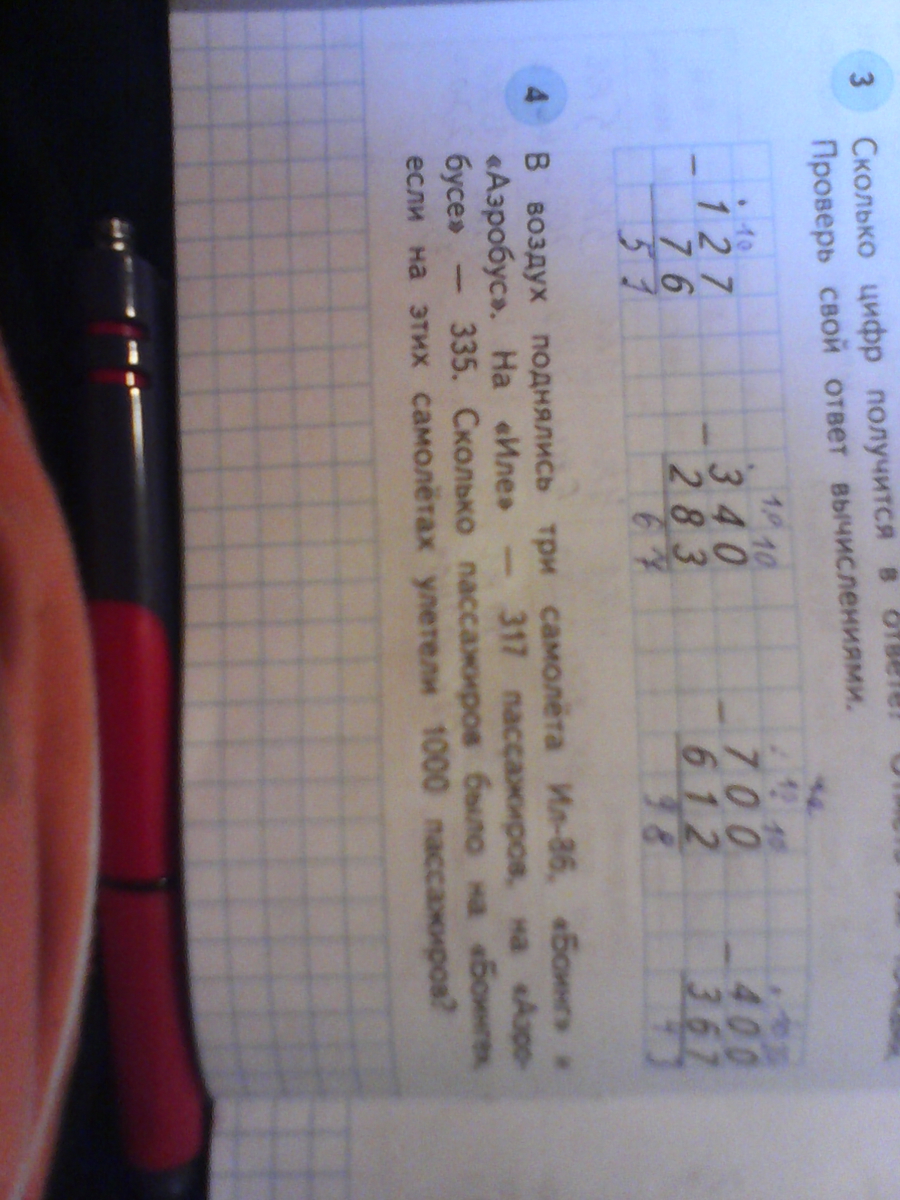 3 Сколько цифр получится в ответе?
Проверь свой ответ вычислениями.
10
10 10
10 10
− 127 − 340 − 700 − 400
76 283 612 367
51 67 98
4 В воздух поднялись три самолёта Ил-86, «Боинг» и
«Аэробус». На «Иле» — 317 пассажиров, на «Аэро-
бусе» — 335. Сколько пассажиров было на «Боинге»,
если на этих самолётах улетели 1000 пассажиров?